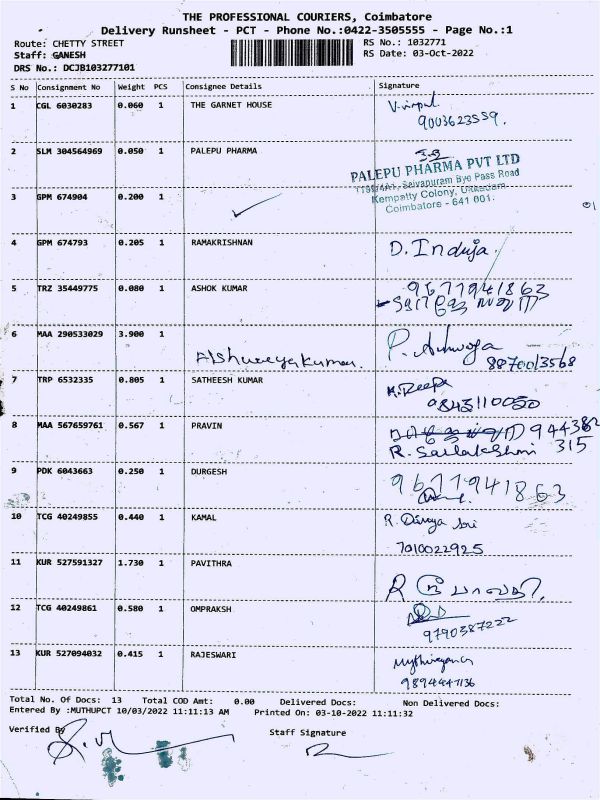 THE PROFESSIONAL COURIERS, Coimbatore
Delivery Runsheet - PCT - Phone No.:0422-3505555 - Page No.:1
Route: CHETTY STREET RS No.: 1032771
Staff: GANESH RS Date: 03-Oct-2022
DRS No.: DCJB103277101
S No Consignment No Weight PCS Consignee Details Signature
1 CGL 6030283 0.060 1 THE GARNET HOUSE
9003623559.
2 SLM 304564969 0.050 1 PALEPU PHARMA
PALEPU PHARMA PVT LTD
Selvapuram Bye Pass Road
Kempatty Colony, Ukkadam
Coimbatore - 641 001.
3 GPM 674904 0.200 1
4 GPM 674793 0.205 1 RAMAKRISHNAN D. Induja.
5 TRZ 35449775 0.080 1 ASHOK KUMAR 9677941863
6 MAA 290533029 3.900 1
Aishwaryakumar. P. 8870013568
7 TRP 6532335 0.805 1 SATHEESH KUMAR K. Deepa
9843110050
8 MAA 567659761 0.567 1 PRAVIN 944382
R. Sailakshmi 315
9 PDK 6043663 0.250 1 DURGESH 9677941863
10 TCG 40249855 0.440 1 KAMAL R. Divya Sri
7010022925
11 KUR 527591327 1.730 1 PAVITHRA
12 TCG 40249861 0.580 1 OMPRAKSH
9790387222
13 KUR 527094032 0.415 1 RAJESWARI
9894447136
Total No. Of Docs: 13 Total COD Amt: 0.00 Delivered Docs: Non Delivered Docs:
Entered By :MUTHUPCT 10/03/2022 11:11:13 AM Printed On: 03-10-2022 11:11:32
Verified By Staff Signature